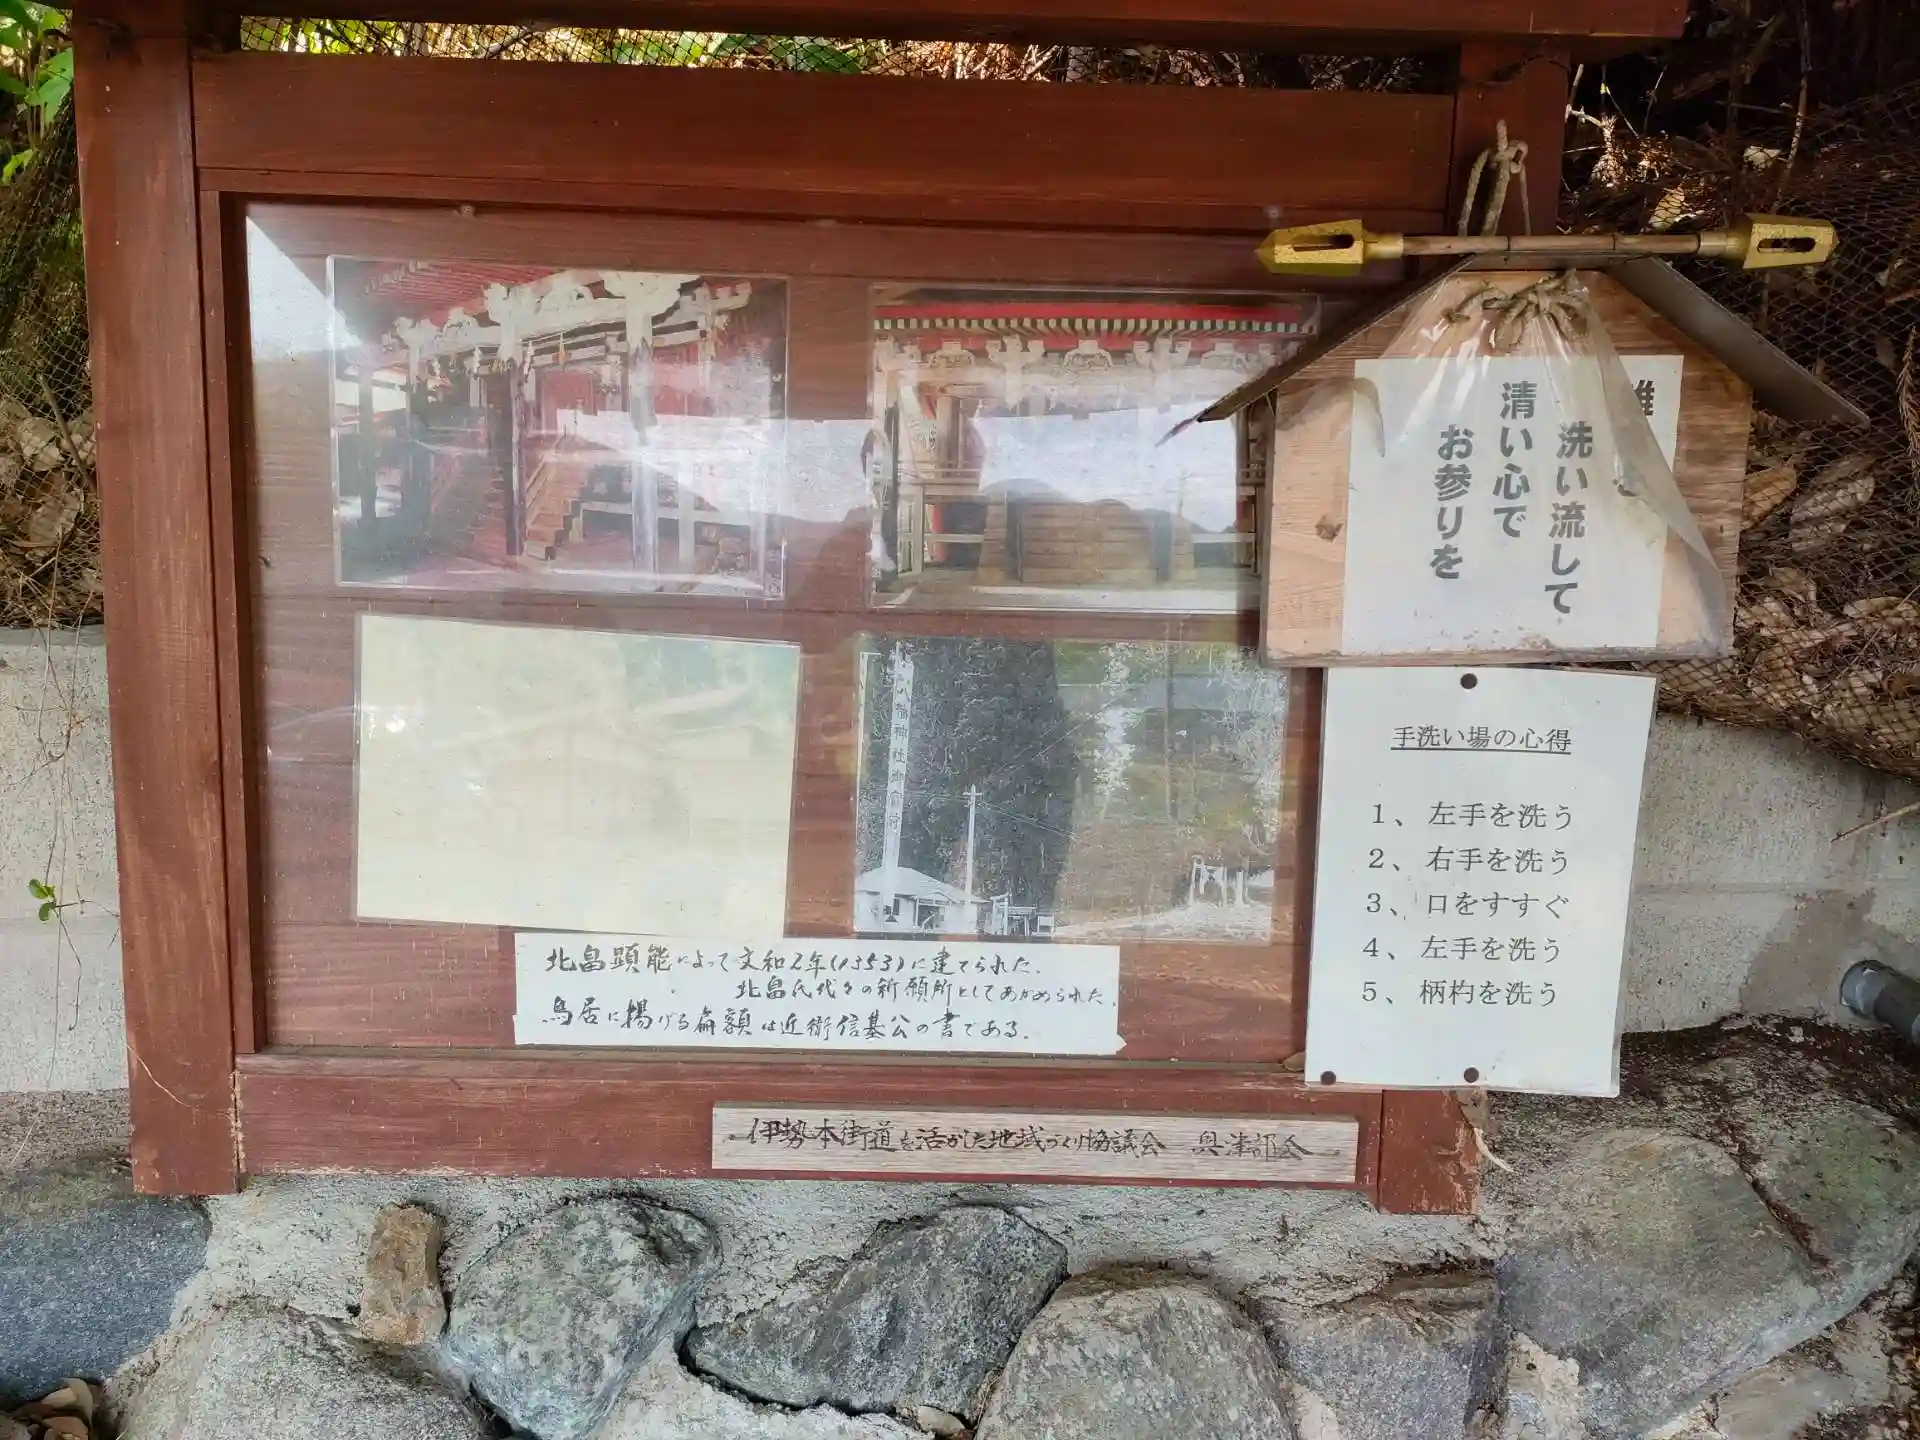 洗い流して
清い心で
お参りを
手洗い場の心得
1、左手を洗う
2、右手を洗う
3、口をすすぐ
4、左手を洗う
5、柄杓を洗う
北畠顕能によって文和2年(1353)に建てられた。
北畠氏代々の祈願所としてあがめられた。
鳥居に揚げる扁額は近衛信基公の書である。
伊勢本街道を活かした地域づくり協議会 興津部会